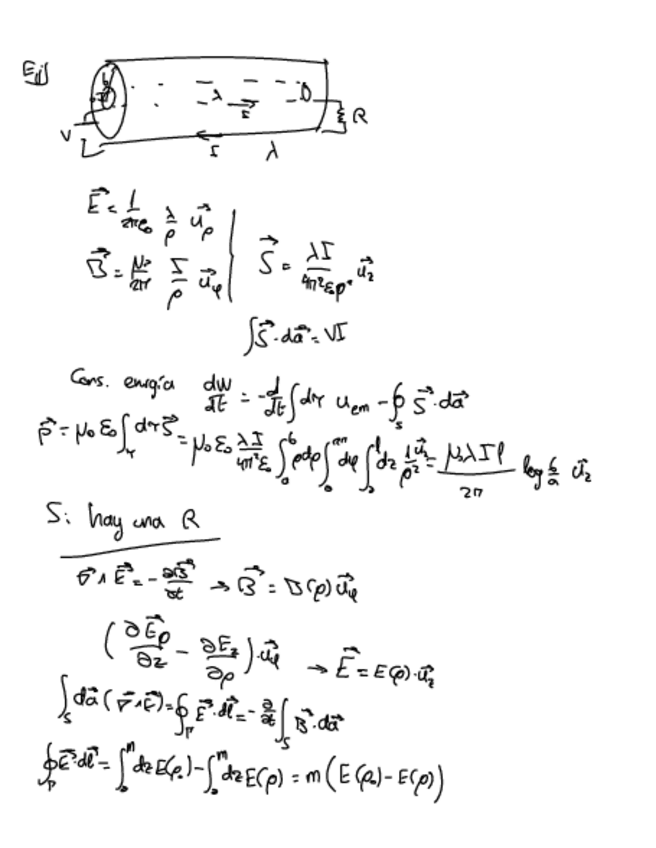 Ej)
b
V I λ I λ R
E⃗ = 1/(2πε₀) λ/ρ u⃗_ρ
B⃗ = μ₀/(2π) I/ρ u⃗_φ | S⃗ = λI/(4π²ε₀ρ²) u⃗_z
∫S⃗·da⃗ = VI
Cons. energía dW/dt = -d/dt ∫dτ u_em - ∮_S S⃗·da⃗
p⃗ = μ₀ε₀ ∫_τ dτ S⃗ = μ₀ε₀ λI/(4π²ε₀) ∫_a^b ρdρ ∫_0^2π dφ ∫_0^l dz 1/ρ² u⃗_z = μ₀λIl/(2π) log b/a u⃗_z
Si hay una R
∇⃗∧E⃗ = -∂B⃗/∂t → B⃗ = B(ρ)u⃗_φ
(∂E⃗ρ/∂z - ∂E_z/∂ρ)·u⃗_φ → E⃗ = E(ρ)·u⃗_z
∫_S da⃗(∇⃗∧E⃗) = ∮_Γ E⃗·dl⃗ = -∂/∂t ∫_S B⃗·da⃗
∮_Γ E⃗·dl⃗ = ∫_0^m dz E(ρ₀) - ∫_0^m dz E(ρ) = m(E(ρ₀) - E(ρ))